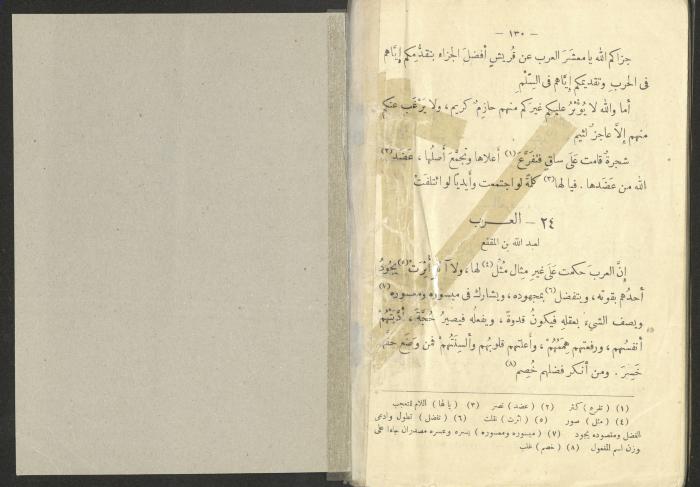 — ١٣٠ —
جزاكم الله يا معشَرَ العرب عن قُريشٍ أفضلَ الجزاء بتقدُّمِكم إيَّاهم
فى الحربِ وتقديمكم إيَّاهم فى السِّلْمِ
أما والله لا يُؤْثِرُ عليكم غيرَكم منهم حازمٌ كريم ، ولا يَرْغَب عنكم
منهم إلَّا عاجزٌ لئيم
شجرةٌ قامت عَلَى ساقٍ فتفرَّعَ (١) أعلاها وتجمَّعَ أصلُها ، عَضَدَ (٢)
الله من عَضَدها . فيا لها (٣) كلمةً لو اجتمعت وأيديًا لو ائتلفَتْ
٢٤ — العـــرب
لعبد الله بن المقفع
إنَّ العربَ حكمت عَلَى غيرِ مِثال مُثِّلَ (٤) لها ، ولا أُثِرَتْ (٥) يجُودُ
أحدُهم بقوته ، ويتفضل (٦) بمجهوده ، ويشارك فى ميسوره ومعسوره (٧)
ويصف الشيءَ بعقلهِ فيكونُ قدوةً ، ويفعلُه فيصيرُ حُجَّةً ، أدَّبَتْهُمْ
أنفسُهم ، ورفعتهم هِمَمُهُمْ ، وأعلتهم قلوبُهم وألسِنَتُهُمْ فمن وضَع حقَّهم
خَسِرَ . ومن أنكر فضلهم خُصِم (٨)
(١) ( تفرع ) كثر (٢) ( عضد ) نصر (٣) ( يا لها ) اللام للتعجب
(٤) ( مثل ) صور (٥) ( أثرت ) نقلت (٦) ( تفضل ) تطول وادعى
الفضل ومقصوده يجود (٧) ( ميسوره ومعسوره ) يسره وعسره مصدران جاءا على
وزن اسم المفعول (٨) ( خصم ) غلب